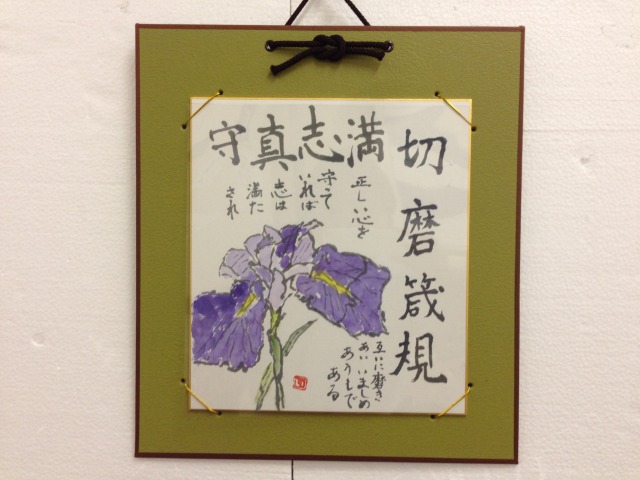 切磨箴規
守真志満
正しい心を
守って
いれば
志は
満た
され
互いに磨き
あいいましめ
あうもで
ある